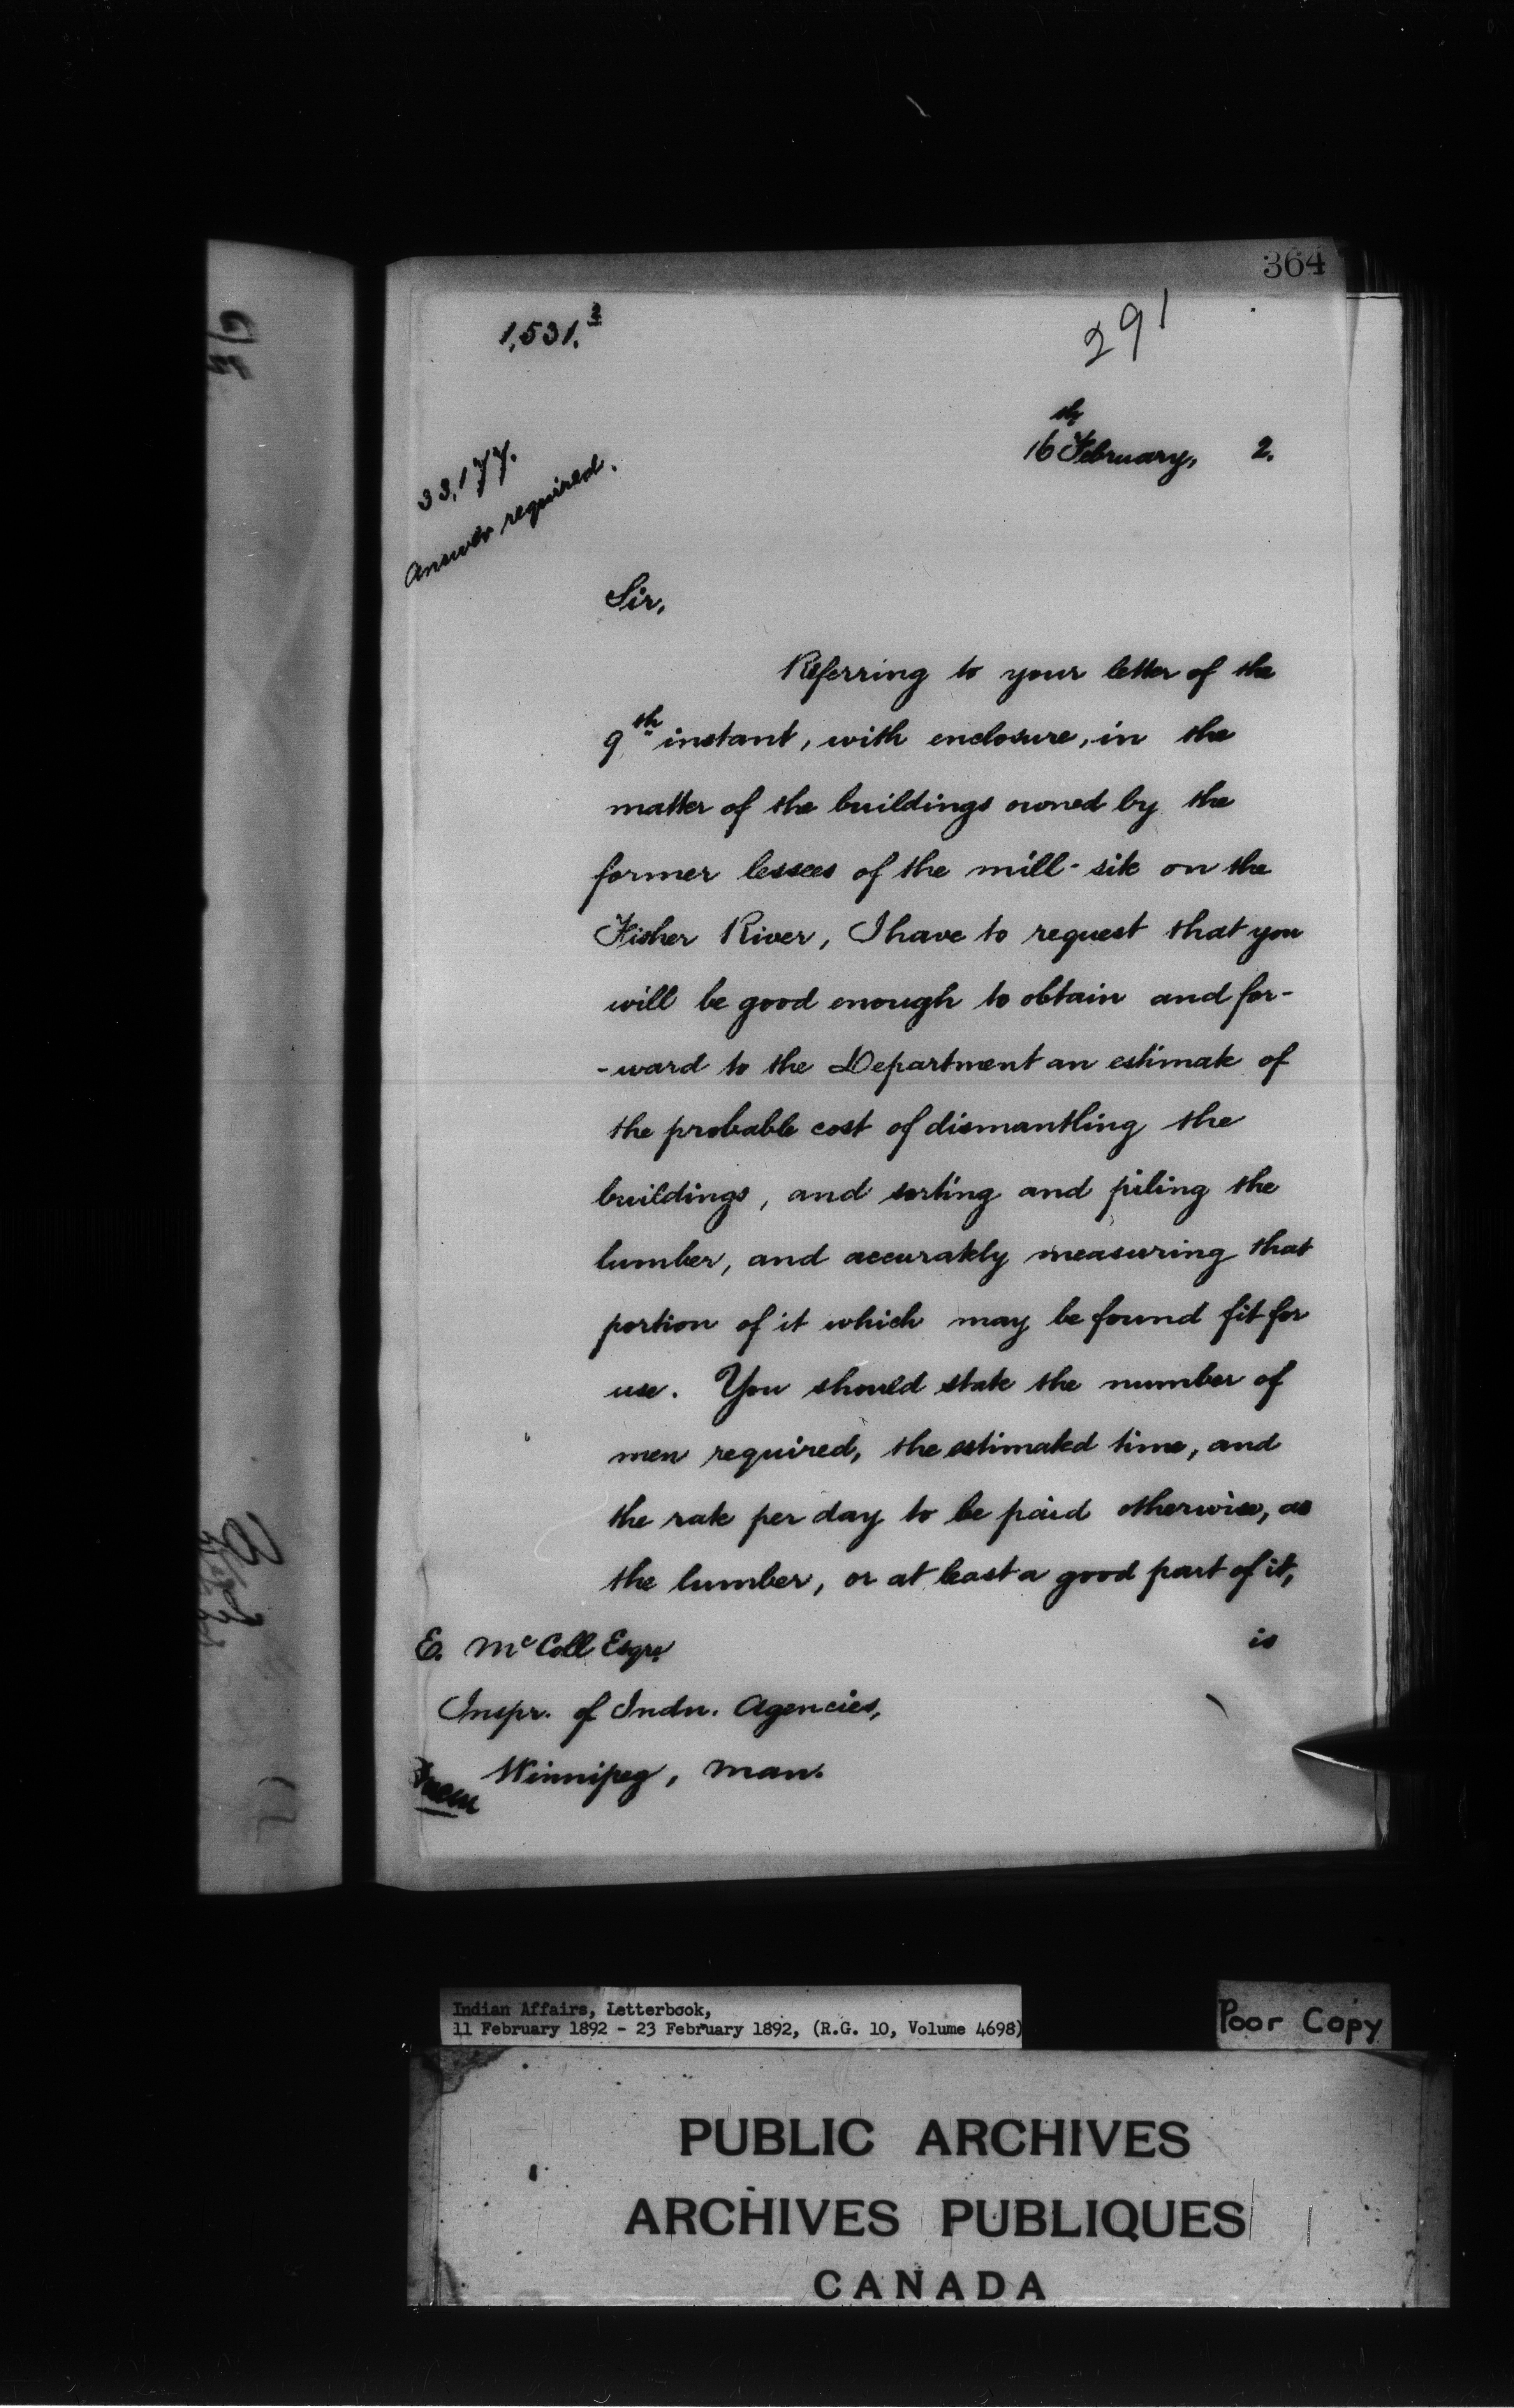 364
1,531.2
291
16th February, 2.
33,177.
Answer required.
Sir,
Referring to your letter of the
9th instant, with enclosure, in the
matter of the buildings owned by the
former lessees of the mill-site on the
Fisher River, I have to request that you
will be good enough to obtain and for-
-ward to the Department an estimate of
the probable cost of dismantling the
buildings, and sorting and piling the
lumber, and accurately measuring that
portion of it which may be found fit for
use. You should state the number of
men required, the estimated time, and
the rate per day to be paid otherwise, as
the lumber, or at least a good part of it,
is
E. McColl Esqre.
Inspr. of Indn. Agencies,
Winnipeg, Man.
Indian Affairs, Letterbook,
11 February 1892 - 23 February 1892, (R.G. 10, Volume 4698)
Poor Copy
PUBLIC ARCHIVES
ARCHIVES PUBLIQUES
CANADA